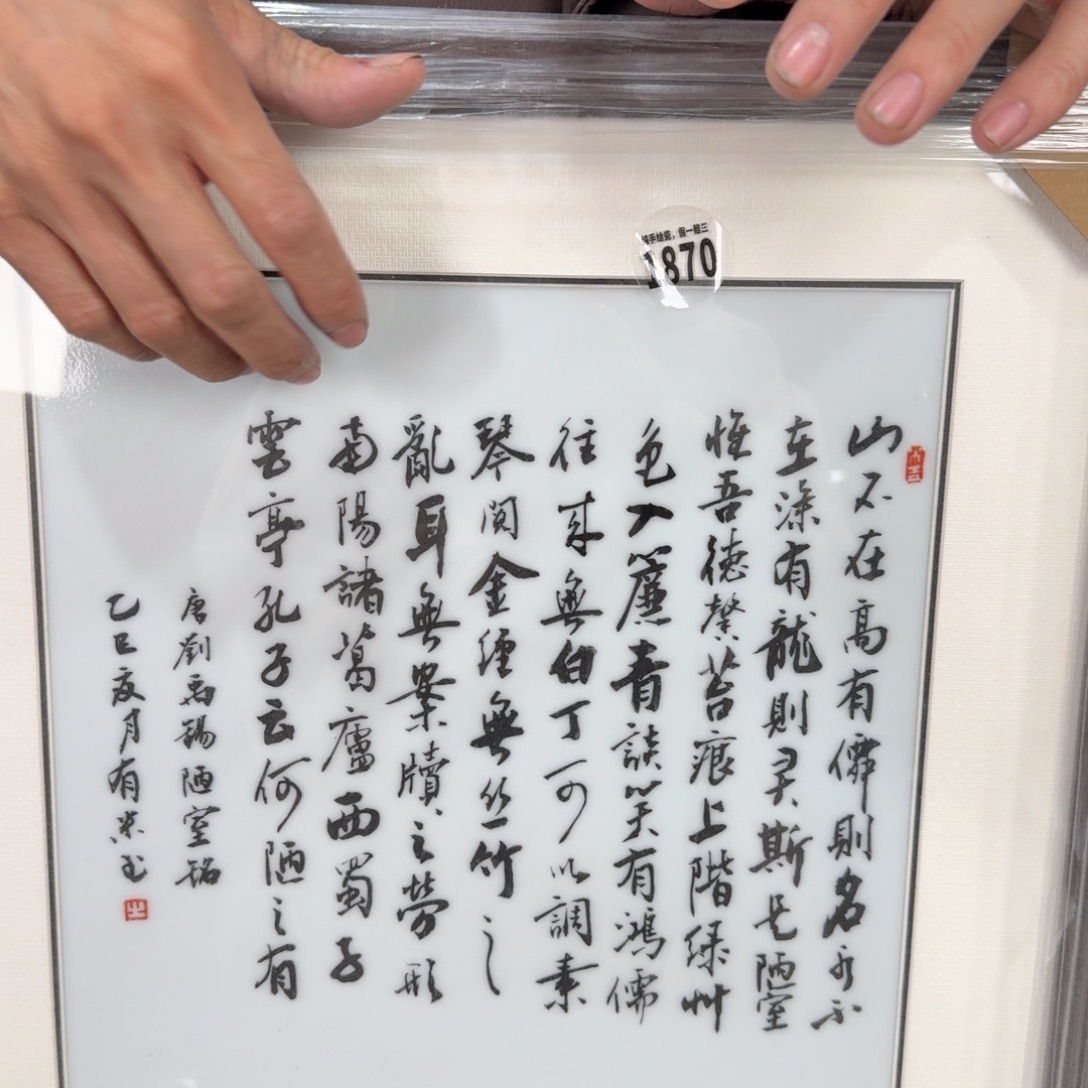 手绘瓷，假一赔三
1870
山不在高有僊則名水不
在深有龍則灵斯是陋室
惟吾德馨苔痕上階緑艸
色入簾青談笑有鴻儒
往来無白丁可以調素
琴閲金經無丝竹之
亂耳無案牘之勞形
南陽諸葛廬西蜀子
雲亭孔子云何陋之有
唐劉禹錫陋室銘
乙巳夏月有